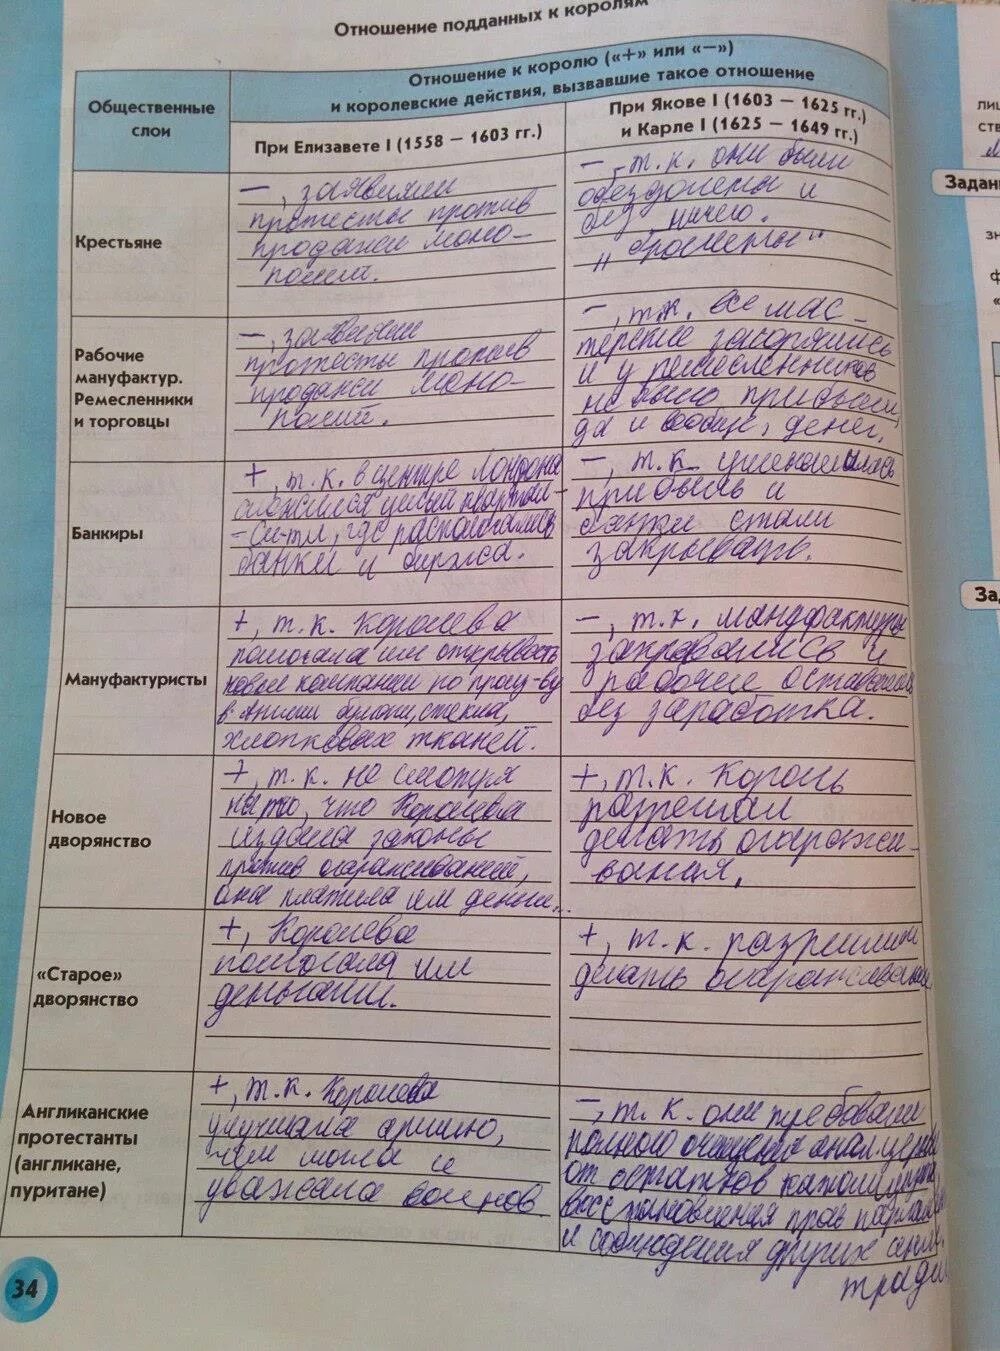 Отношение подданных к королям
Общественные
слои
Отношение к королю («+» или «—»)
и королевские действия, вызвавшие такое отношение
При Елизавете I (1558 — 1603 гг.)
При Якове I (1603 — 1625 гг.)
и Карле I (1625 — 1649 гг.)
Крестьяне
—, заявляли
протесты против
продажи моно-
полии.
—, т.к. они были
обездолены и
без ничего.
„ бросмерты“
Рабочие
мануфактур.
Ремесленники
и торговцы
—, заявляли
протесты против
продажи моно-
полий.
—, т.к. все мас-
терские закрылись
и у ремесленников
не было прибыли,
да и вообще, денег.
Банкиры
+, т.к. в центре Лондона
сложился целый квартал-
-Сити, где располагались
банки и биржа.
—, т.к. уменьшилась
прибыль и
банки стали
закрывать.
Мануфактуристы
+, т.к. Королева
помогала им открывать
новые компании по произ-ву
в Англии бумаги, стекла,
хлопковых тканей.
—, т.к. мануфактуры
закрывались и
рабочие оставались
без заработка.
Новое
дворянство
+, т.к. не смотря
на то, что Королева
издала законы
против огораживаний,
она платила им деньги...
+, т.к. Король
разрешал
делать огоражи-
вания.
«Старое»
дворянство
+, Королева
помогала им
деньгами.
+, т.к. разрешили
делать огораживания
Англиканские
протестанты
(англикане,
пуритане)
+, т.к. Королева
улучшала армию,
чем могла и
уважала воинов
—, т.к. они требовали
полного очищения англ. церкви
от остатков католицизма
прав парламента
и соблюдения других англ.
тради
34
лиц
ств
Задани
зн
ф
«
Зад